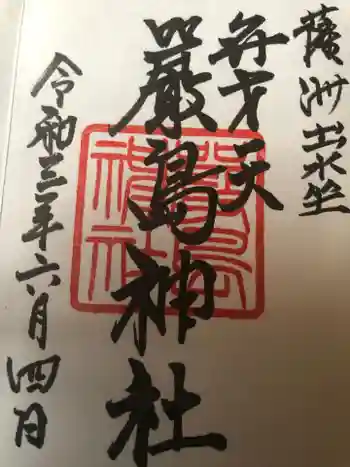 薩州出水坐
弁才天
嚴島神社
嚴島神社
令和三年六月四日